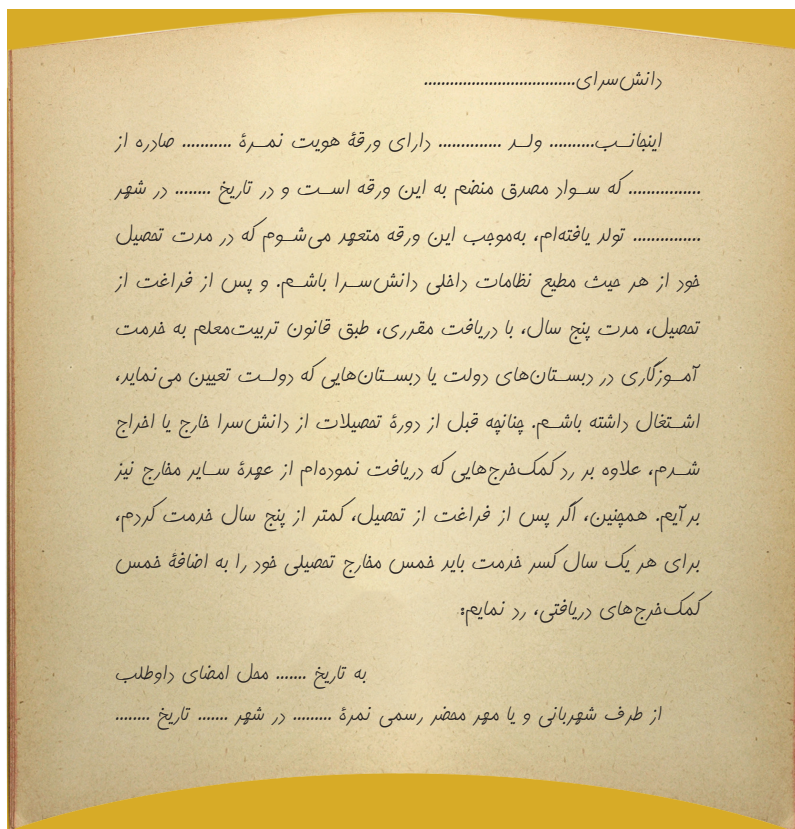 دانش‌سرای..................................
اینجانــب.......... ولــد .............. دارای ورقهٔ هویت نمــرهٔ ........... صادره از
................ که ســواد مصدق منضم به این ورقه اســت و در تاریخ ........ در شهر
............... تولد یافته‌ام، به‌موجب این ورقه متعهد می‌شــوم که در مدت تحصیل
خود از هر حیث مطیع نظامات داخلی دانش‌ســرا باشــم. و پس از فراغت از
تحصیل، مدت پنج سال، با دریافت مقرری، طبق قانون تربیت‌معلم به خدمت
آمــوزگاری در دبســتان‌های دولت یا دبســتان‌هایی که دولــت تعیین می‌نماید،
اشــتغال داشته باشــم. چنانچه قبل از دورهٔ تحصیلات از دانش‌سرا خارج یا اخراج
شــدم، علاوه بر رد کمک‌خرج‌هایی که دریافت نموده‌ام از عهدهٔ ســایر مخارج نیز
برآیم. همچنین، اگر پس از فراغت از تحصیل، کمتر از پنج سال خدمت کردم،
برای هر یک سال کسر خدمت باید خمس مخارج تحصیلی خود را به اضافهٔ خمس
کمک‌خرج‌های دریافتی، رد نمایم:
به تاریخ ....... محل امضای داوطلب
از طرف شهربانی و یا مهر محضر رسمی نمرهٔ ......... در شهر ....... تاریخ ........